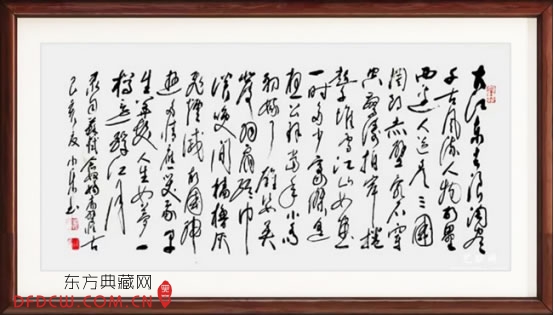 大江东去浪淘尽
千古风流人物故垒
西边人道是三国
周郎赤壁乱石穿
空惊涛拍岸卷
起千堆雪江山如画
一时多少豪杰遥
想公瑾当年小乔
初嫁了雄姿英
发羽扇纶巾
谈笑间樯橹灰
飞烟灭故国神
游多情应笑我早
生华发人生如梦一
樽还酹江月
录自苏轼念奴娇赤壁怀古
己亥夏书
东方典藏网
DFDCW.COM.CN